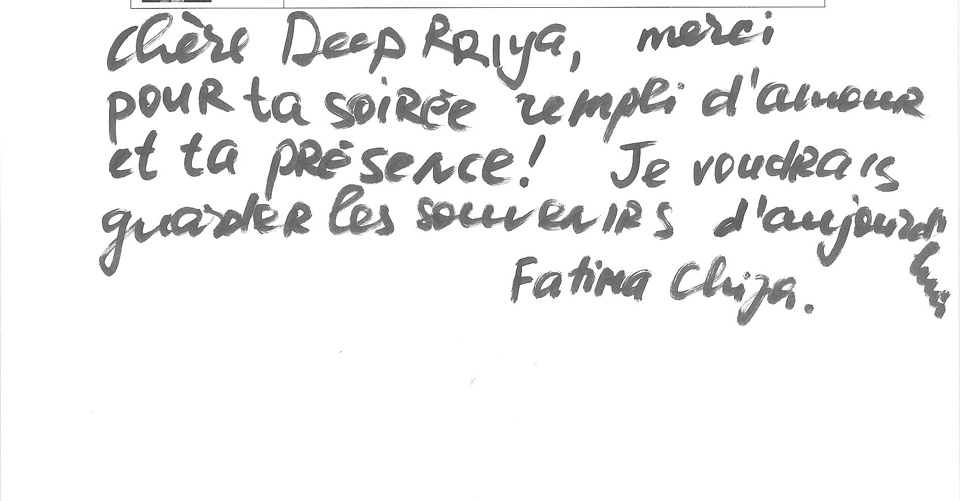 Chère Deep Rriya, merci
pour ta soirée rempli d'amour
et ta présence! Je voudrais
guarder les souvenirs d'aujourd'
hui
Fatima Chiza.